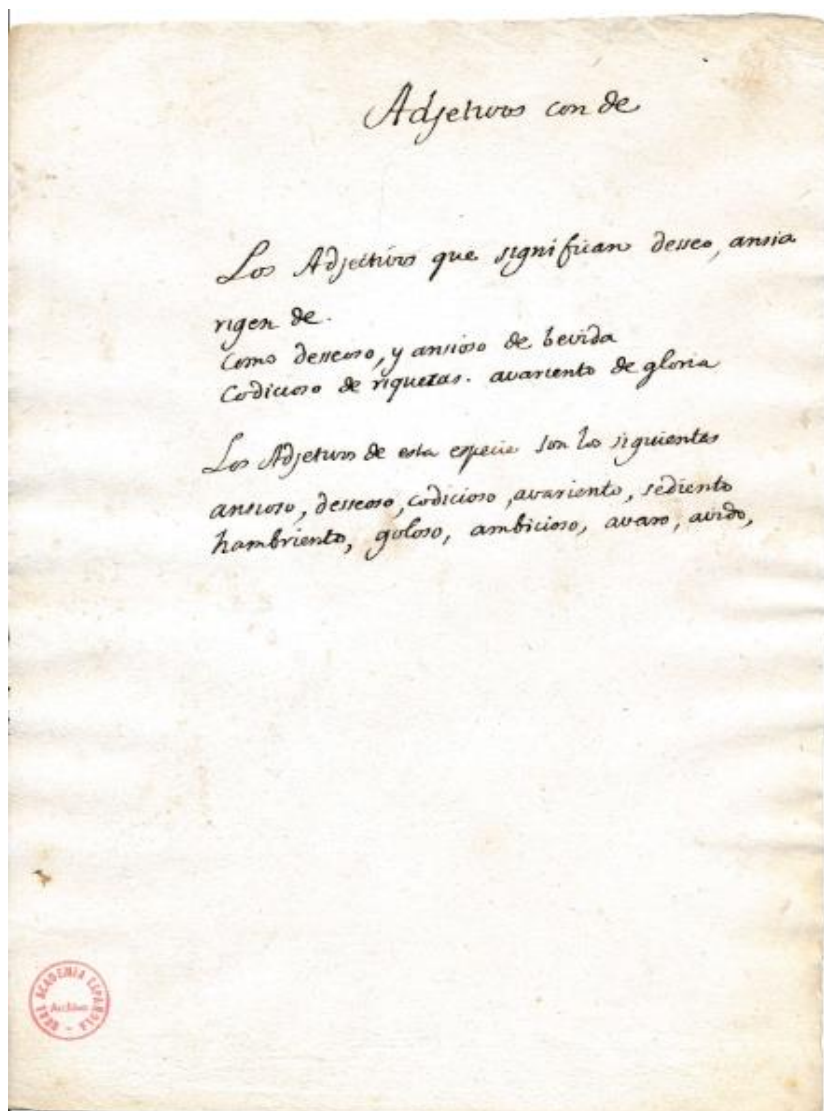 Adjetivos con de
Los Adjectivos que significan desseo, ansia
rigen de.
como desseoso, y ansioso de bevida
Codicioso de riquezas. avariento de gloria
Los Adjetivos de esta especie son los siguientes
ansioso, desseoso, codicioso, avariento, sediento
hambriento, goloso, ambicioso, avaro, avido,
REAL ACADEMIA ESPAÑOLA
Archivo